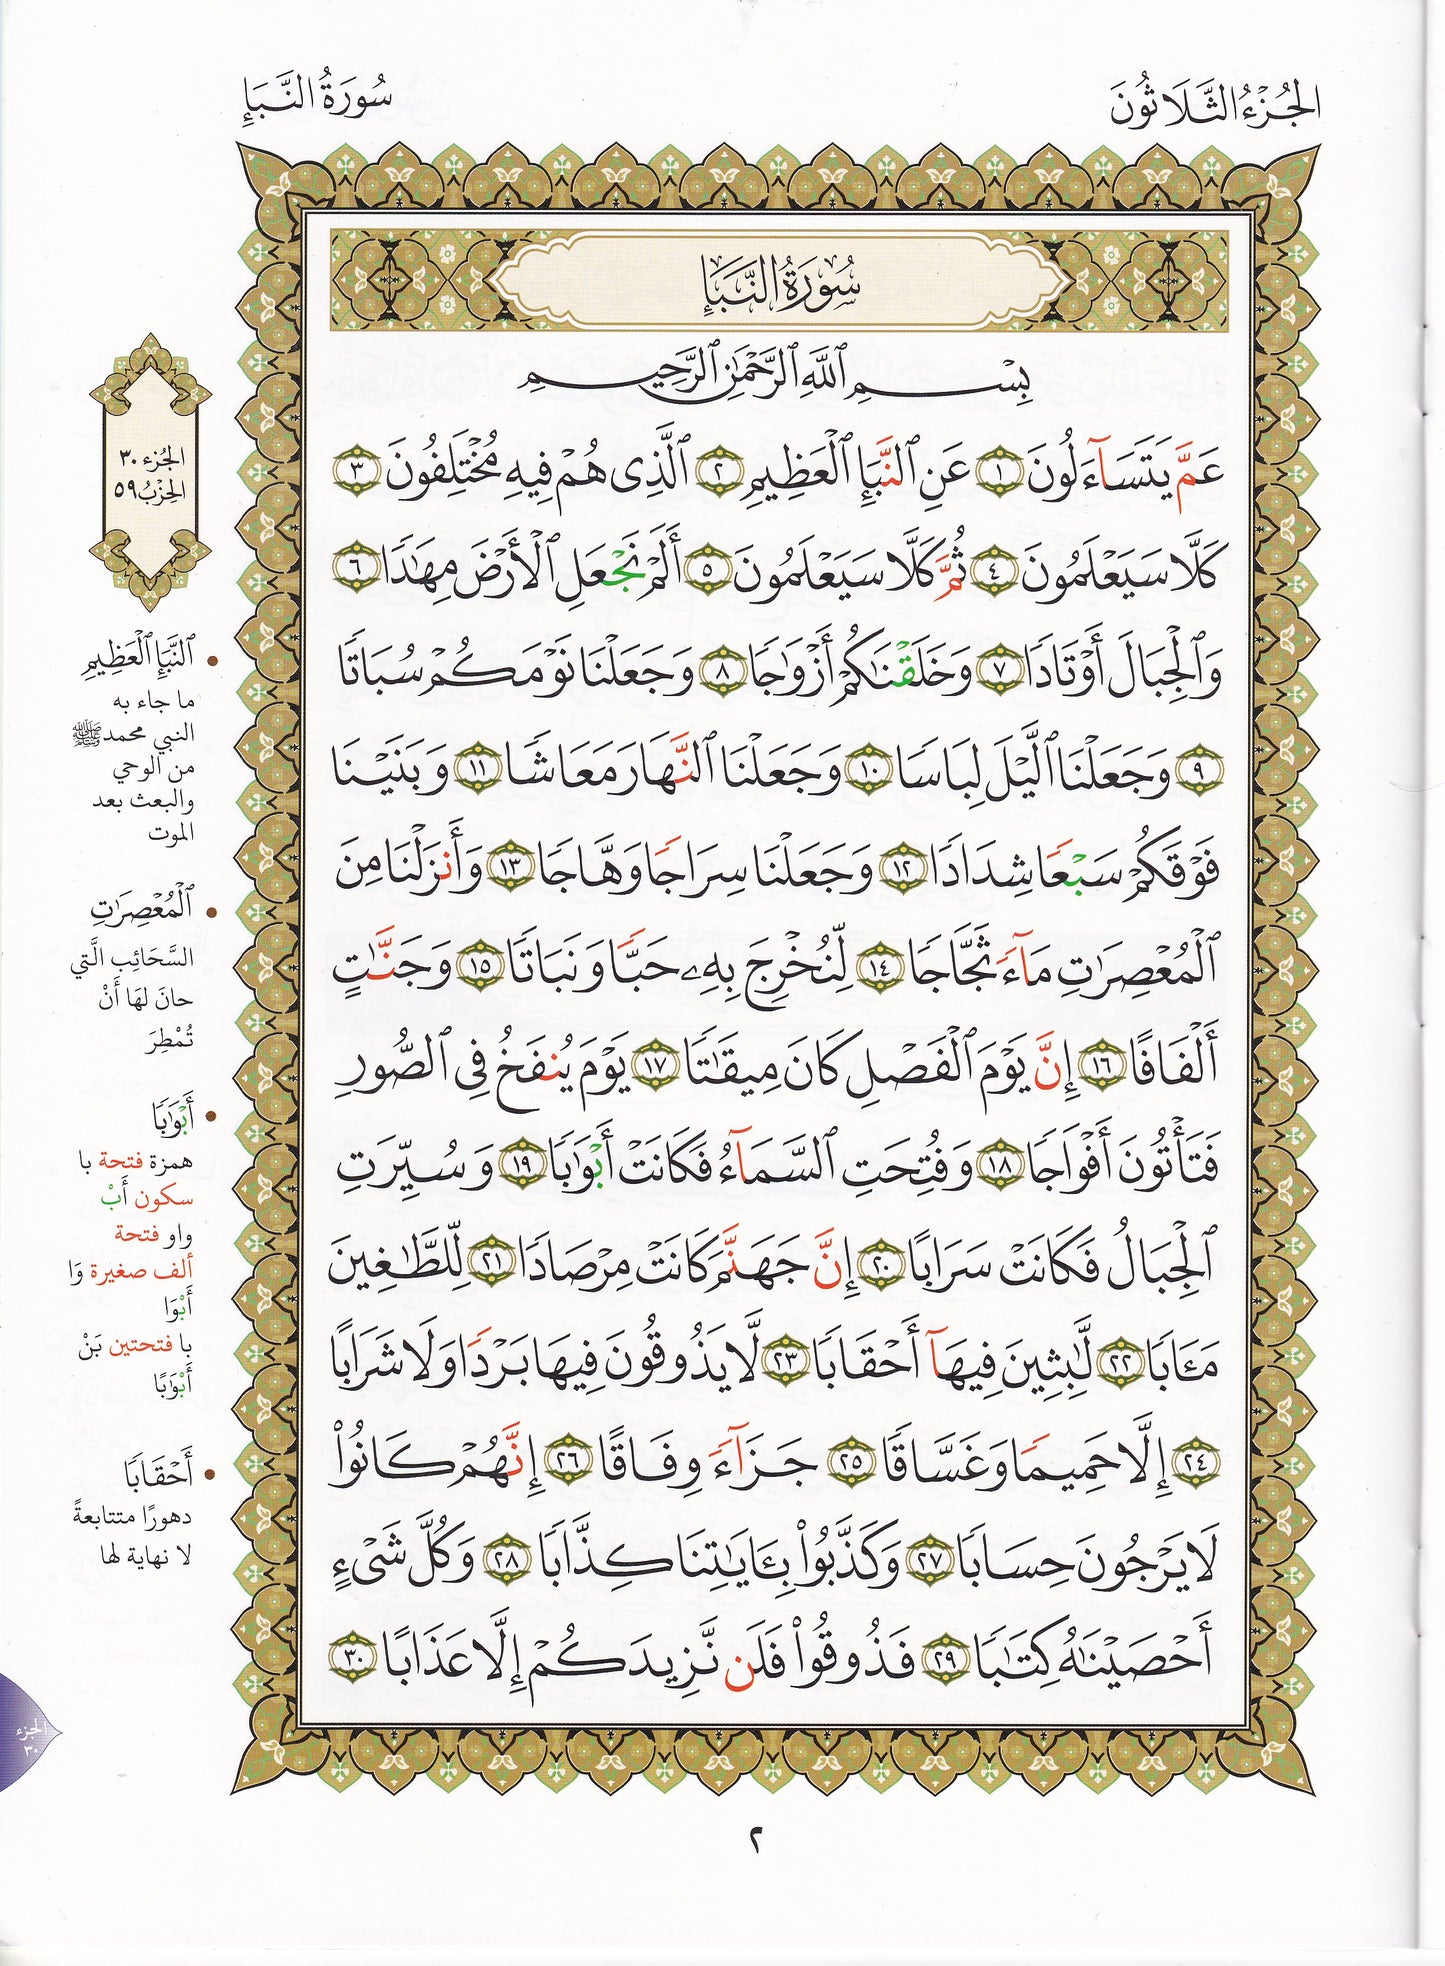 الجُزْءُ الثَّلَاثُونَ
سُورَةُ النَّبَإِ
سُورَةُ النَّبَإِ
بِسْمِ ٱللَّهِ ٱلرَّحْمَٰنِ ٱلرَّحِيمِ
عَمَّ يَتَسَآءَلُونَ ١ عَنِ ٱلنَّبَإِ ٱلْعَظِيمِ ٢ ٱلَّذِى هُمْ فِيهِ مُخْتَلِفُونَ ٣
كَلَّا سَيَعْلَمُونَ ٤ ثُمَّ كَلَّا سَيَعْلَمُونَ ٥ أَلَمْ نَجْعَلِ ٱلْأَرْضَ مِهَٰدًا ٦
وَٱلْجِبَالَ أَوْتَادًا ٧ وَخَلَقْنَٰكُمْ أَزْوَٰجًا ٨ وَجَعَلْنَا نَوْمَكُمْ سُبَاتًا
٩ وَجَعَلْنَا ٱلَّيْلَ لِبَاسًا ١٠ وَجَعَلْنَا ٱلنَّهَارَ مَعَاشًا ١١ وَبَنَيْنَا
فَوْقَكُمْ سَبْعًا شِدَادًا ١٢ وَجَعَلْنَا سِرَاجًا وَهَّاجًا ١٣ وَأَنزَلْنَا مِنَ
ٱلْمُعْصِرَٰتِ مَآءً ثَجَّاجًا ١٤ لِّنُخْرِجَ بِهِۦ حَبًّا وَنَبَاتًا ١٥ وَجَنَّٰتٍ
أَلْفَافًا ١٦ إِنَّ يَوْمَ ٱلْفَصْلِ كَانَ مِيقَٰتًا ١٧ يَوْمَ يُنفَخُ فِى ٱلصُّورِ
فَتَأْتُونَ أَفْوَاجًا ١٨ وَفُتِحَتِ ٱلسَّمَآءُ فَكَانَتْ أَبْوَٰبًا ١٩ وَسُيِّرَتِ
ٱلْجِبَالُ فَكَانَتْ سَرَابًا ٢٠ إِنَّ جَهَنَّمَ كَانَتْ مِرْصَادًا ٢١ لِّلطَّٰغِينَ
مَـَٔابًا ٢٢ لَّٰبِثِينَ فِيهَآ أَحْقَابًا ٢٣ لَّا يَذُوقُونَ فِيهَا بَرْدًا وَلَا شَرَابًا
٢٤ إِلَّا حَمِيمًا وَغَسَّاقًا ٢٥ جَزَآءً وِفَاقًا ٢٦ إِنَّهُمْ كَانُوا۟
لَا يَرْجُونَ حِسَابًا ٢٧ وَكَذَّبُوا۟ بِـَٔايَٰتِنَا كِذَّابًا ٢٨ وَكُلَّ شَىْءٍ
أَحْصَيْنَٰهُ كِتَٰبًا ٢٩ فَذُوقُوا۟ فَلَن نَّزِيدَكُمْ إِلَّا عَذَابًا ٣٠
الجُزء ٣٠
الحِزْبُ ٥٩
ٱلنَّبَإِ ٱلْعَظِيمِ
ما جاء به
النبي محمد ﷺ
من الوحي
والبعث بعد
الموت
ٱلْمُعْصِرَٰتِ
السَّحَائِب الَّتي
حانَ لهَا أَنْ
تُمْطِرَ
أَبْوَٰبًا
همزة فتحة با
سكون أَبْ
واو فتحة
ألف صغيرة وَا
أَبْوَا
با فتحتين بَنْ
أَبْوَٰبًا
أَحْقَابًا
دهورًا متتابعةً
لا نهاية لها
الجزء
٣٠
٢